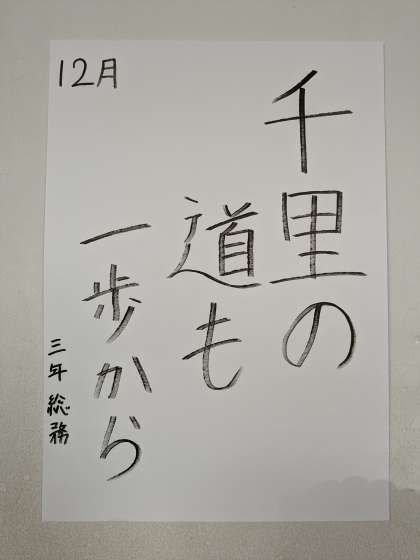 12月
千里の
道も
一歩から
三年総務